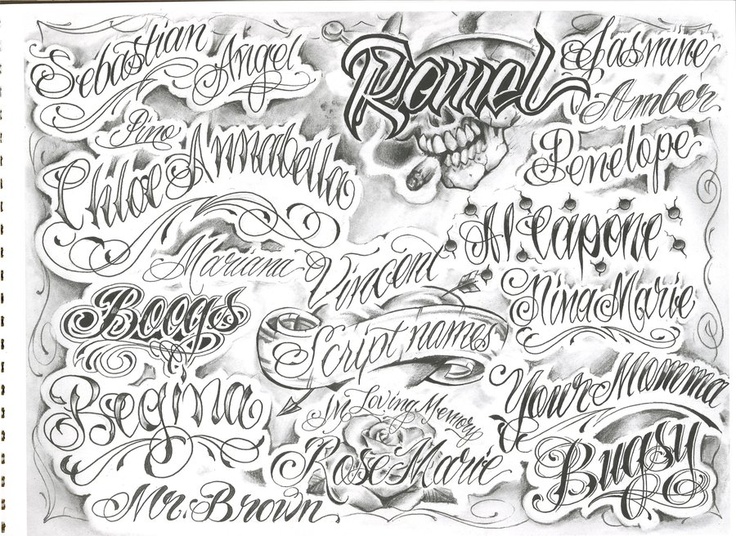 Sebastian
Angel
Jasmine
Amber
Chloe
Annabella
Penelope
Al Capone
Mariana
Vincent
Nina Marie
Boogs
Script names
Your Momma
Regina
In Loving Memory
Rose Marie
Bugsy
Mr. Brown